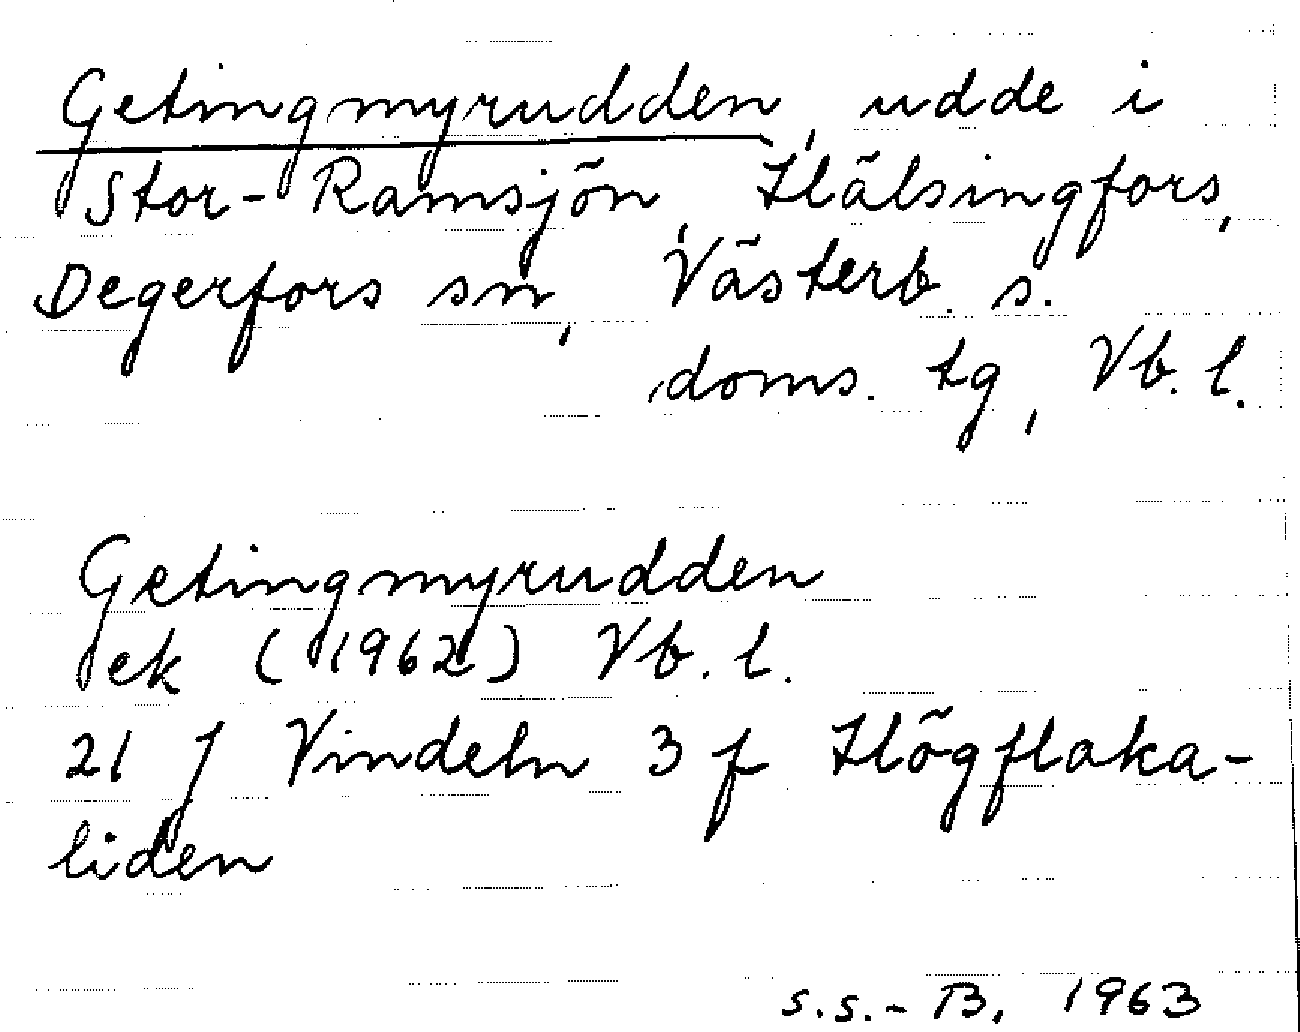 Getingmyrudden, udde i
Stor-Ramsjön, Hälsingfors,
Degerfors sn, Västerb. s.
doms. tg, Vb. l.
Getingmyrudden
ek (1962) Vb. l.
21 J Vindeln 3 f Högflaka-
liden
s.s.-B, 1963